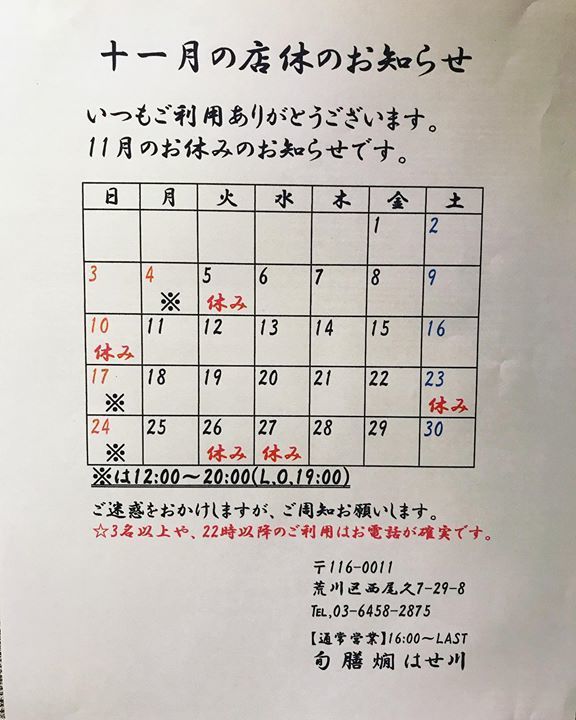 十一月の店休のお知らせ
いつもご利用ありがとうございます。
11月のお休みのお知らせです。
日 月 火 水 木 金 土
1 2
3 4 5 6 7 8 9
※ 休み
10 11 12 13 14 15 16
休み
17 18 19 20 21 22 23
※ 休み
24 25 26 27 28 29 30
※ 休み 休み
※は12:00～20:00(L,O,19:00)
ご迷惑をおかけしますが、ご周知お願いします。
☆3名以上や、22時以降のご利用はお電話が確実です。
〒116-0011
荒川区西尾久7-29-8
TEL,03-6458-2875
【通常営業】16:00～LAST
旬膳燗はせ川